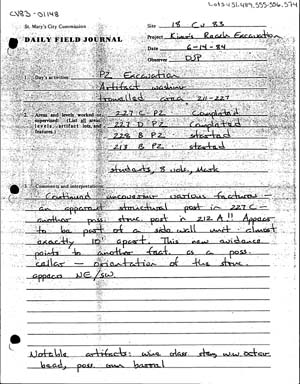 CV83-01148
Lots 451, 489, 555-556, 574
St. Mary's City Commission
Site 18 Cv 83
DAILY FIELD JOURNAL
Project King's Reach Excavation
Date 6-14-84
Observer DJP
1. Day's activities: PZ Excavation
Artifact washing
trowelled area 211-227
2. Areas and levels worked or
supervised: (List all areas,
levels, artifact lots, and
features.)
227 C PZ Completed
227 D PZ Completed
228 B PZ started
213 B PZ started
students, 8 vols, Mark
3. Comments and interpretations:
Continued uncovering various features -
an apparent structural post in 227C -
another poss. struc. post in 212A!! Appears
to be part of a side wall unit - almost
exactly 10' apart. This new evidence
points to another feat. as a poss.
cellar - orientation of the struc.
appears NE/SW.
Notable artifacts: wine glass stem, ww octor
bead, poss. gun barrel